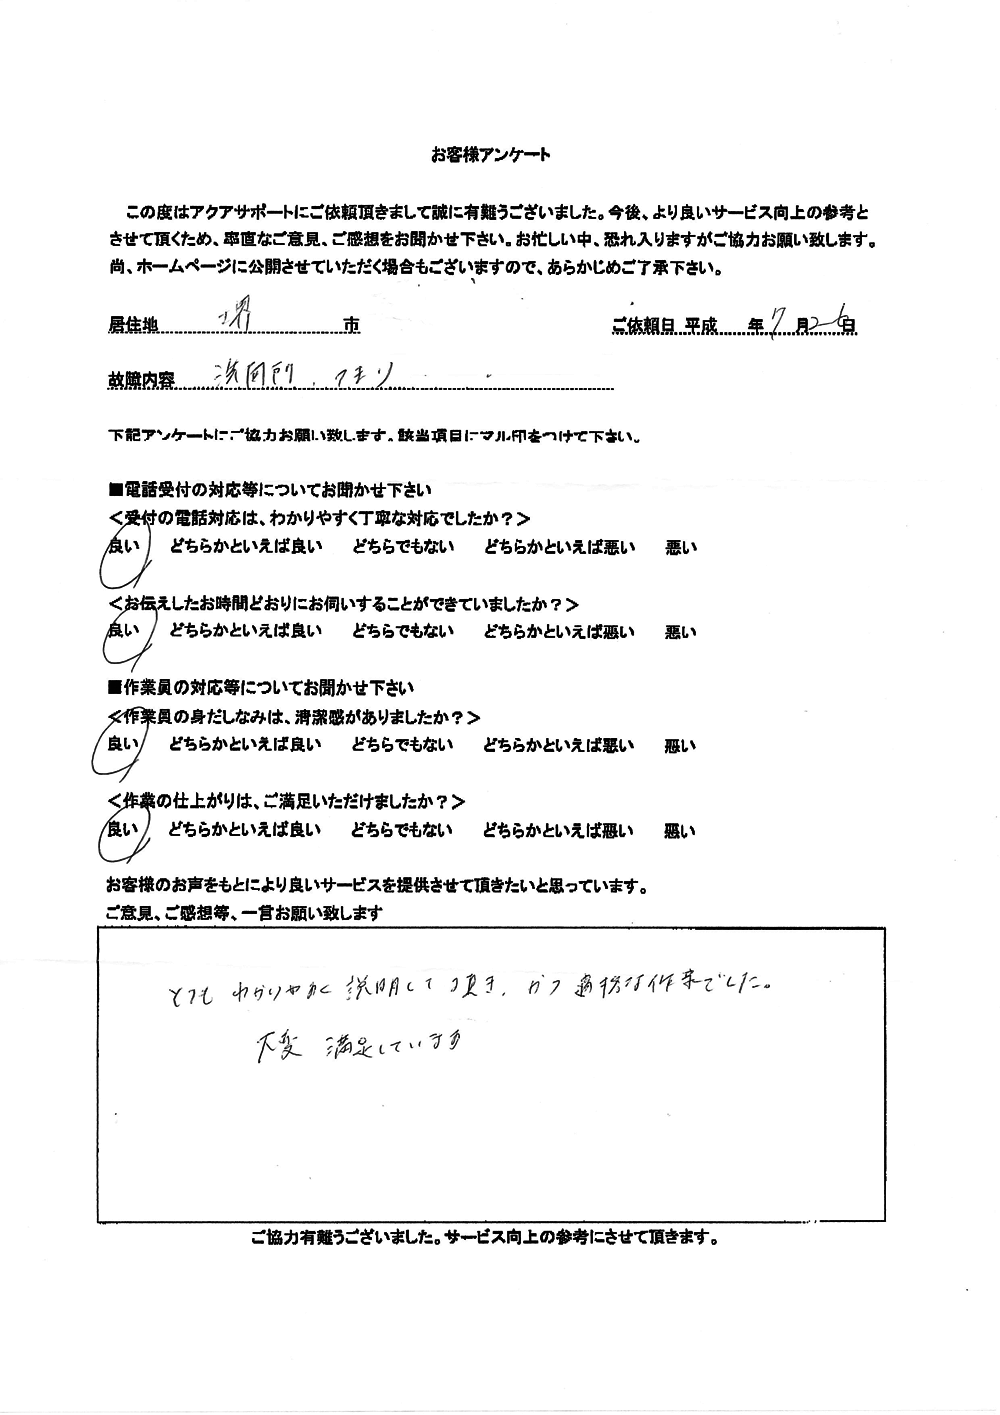 お客様アンケート
この度はアクアサポートにご依頼頂きまして誠に有難うございました。今後、より良いサービス向上の参考と
させて頂くため、率直なご意見、ご感想をお聞かせ下さい。お忙しい中、恐れ入りますがご協力お願い致します。
尚、ホームページに公開させていただく場合もございますので、あらかじめご了承下さい。
居住地 堺 市 ご依頼日 平成 年 7月26日
故障内容 洗面所 つまり
下記アンケートにご協力お願い致します。該当項目にマル印をつけて下さい。
■電話受付の対応等についてお聞かせ下さい
<受付の電話対応は、わかりやすく丁寧な対応でしたか?>
良い どちらかといえば良い どちらでもない どちらかといえば悪い 悪い
<お伝えしたお時間どおりにお伺いすることができていましたか?>
良い どちらかといえば良い どちらでもない どちらかといえば悪い 悪い
■作業員の対応等についてお聞かせ下さい
<作業員の身だしなみは、清潔感がありましたか?>
良い どちらかといえば良い どちらでもない どちらかといえば悪い 悪い
<作業の仕上がりは、ご満足いただけましたか?>
良い どちらかといえば良い どちらでもない どちらかといえば悪い 悪い
お客様のお声をもとにより良いサービスを提供させて頂きたいと思っています。
ご意見、ご感想等、一言お願い致します
とてもわかりやすく説明して頂き、かつ な作業でした。
大変 満足しています
ご協力有難うございました。サービス向上の参考にさせて頂きます。